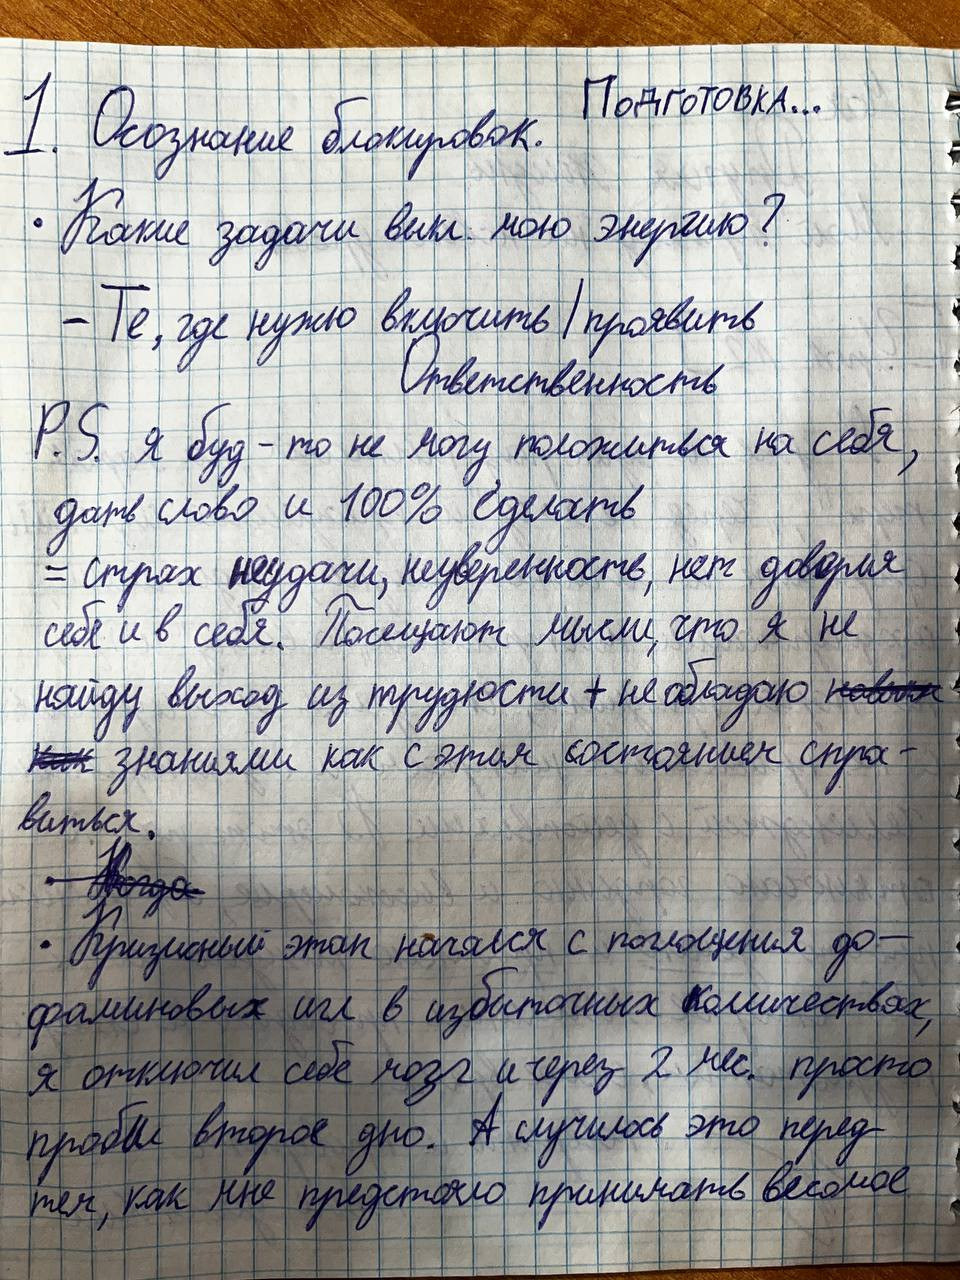 Подготовка...
1. Осознание блокировок.
• Какие задачи выкл. мою энергию?
- Те, где нужно включить/проявить
Ответственность
P.S. Я буд-то не могу положиться на себя,
дать слово и 100% сделать
= страх неудачи, неуверенность, нет доверия
себе и в себя. Посещают мысли, что я не
найду выход из трудности + не обладаю навык
как знаниями как с этим состоянием спра-
виться.
• Когда
• Кризисный этап начался с поглощения до-
фаминовых игл в избыточных количествах,
я отключил себе мозг и через 2 мес. просто
пробил второе дно. А случилось это перед
тем, как мне предстояло принимать весомое